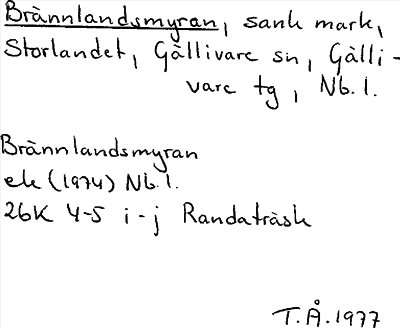 Brännlandsmyran, sank mark,
Storlandet, Gällivare sn, Gälli-
vare tg, Nb.l.
Brännlandsmyran
ek (1974) Nb.l.
26K 4-5 i-j Randaträsk
T.Å.1977